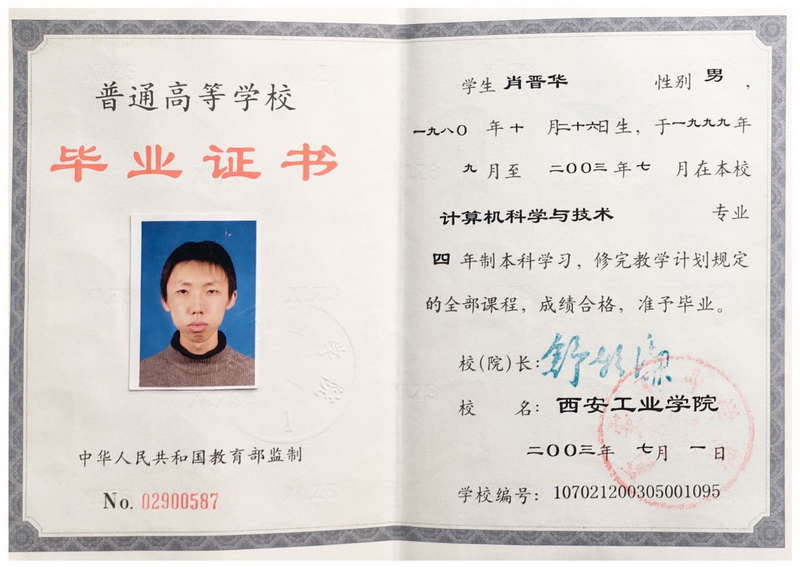 普通高等学校
毕业证书
中华人民共和国教育部监制
No. 02900587
学生 肖晋华 性别 男,
一九八〇 年十 月二十六日生,于一九九九年
九 月至 二〇〇三 年七 月在本校
计算机科学与技术 专业
四 年制本科学习,修完教学计划规定
的全部课程,成绩合格,准予毕业。
校(院)长:
校 名: 西安工业学院
二〇〇三年 七月 一日
学校编号: 107021200305001095